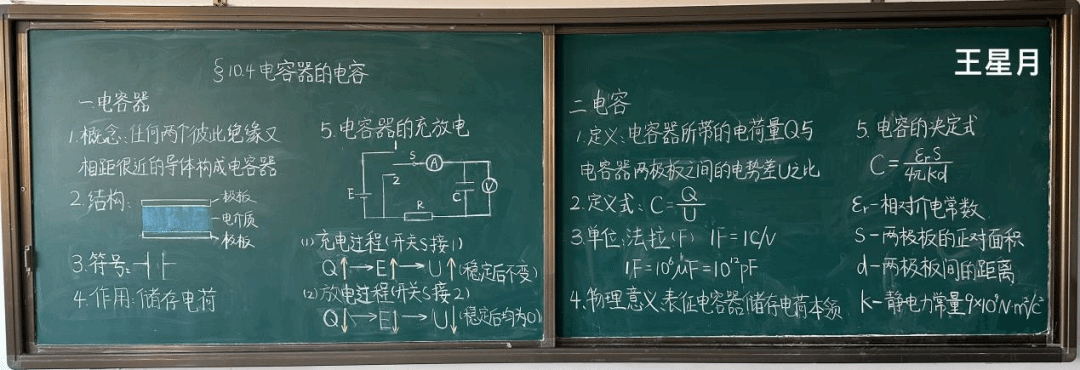 §10.4电容器的电容
一电容器
1.概念:任何两个彼此绝缘又
相距很近的导体构成电容器
2.结构:
极板
电介质
极板
3.符号:
4.作用:储存电荷
5.电容器的充放电
1
S
A
2
E
C
V
R
(1)充电过程(开关S接1)
Q↑→E↑→U↑(稳定后不变)
(2)放电过程(开关S接2)
Q↓→E↓→U↓(稳定后均为0)
王星月
二电容
1.定义:电容器所带的电荷量Q与
电容器两极板之间的电势差U之比
2.定义式:C=Q/U
3.单位:法拉(F) 1F=1C/V
1F=10⁶μF=10¹²pF
4.物理意义:表征电容器储存电荷本领
5.电容的决定式
C=εrS/4πkd
εr-相对介电常数
S-两极板的正对面积
d-两极板间的距离
k-静电力常量9×10⁹N·m²/C²